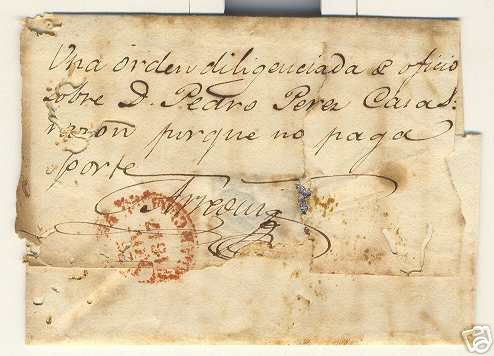 Una orden diligenciada de oficio
sobre D. Pedro Perez Casas.
razon porque no paga
porte